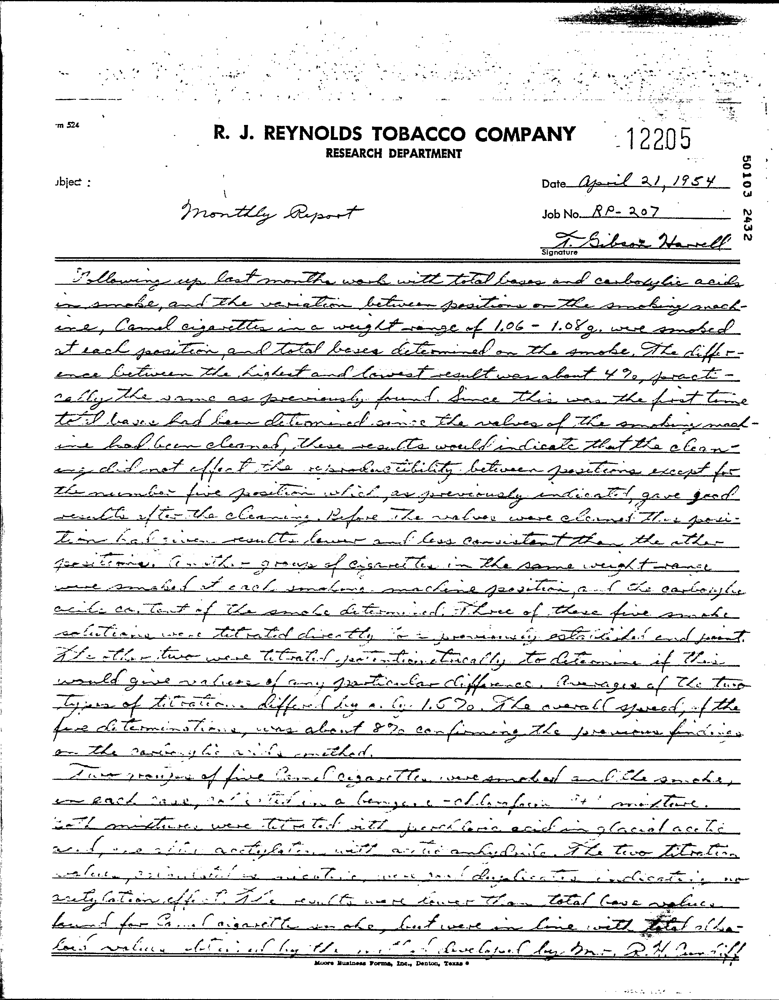 'm 524
R. J. REYNOLDS TOBACCO COMPANY
RESEARCH DEPARTMENT
12205
50103 2432
ubject :
Monthly Report
Date April 21, 1954
Job No. RP-207
T. Gibson Harrell
Signature
Following up last months work with total bases and carboxylic acids
in smoke, and the variation between positions on the smoking mach-
ine, Camel cigarettes in a weight range of 1.06 - 1.08 g. were smoked
at each position, and total bases determined on the smoke. The differ-
ence between the highest and lowest result was about 4%, practi-
cally the same as previously found. Since this was the first time
total bases had been determined since the valves of the smoking mach-
ine had been cleaned, these results would indicate that the clean-
ing did not affect the reproductibility between positions except for
the number five position which, as previously indicated, gave good
results after the cleaning. Before the valves were cleaned this posi-
tion had given results lower and less consistent than the other
positions. Another group of cigarettes in the same weight range
were smoked at each smoking machine position, and the carboxylic
acids content of the smoke determined. Three of these five smoke
solutions were titrated directly to a previously established end point.
The other two were titrated potentiometrically to determine if this
would give values of any particular difference. Averages of the two
types of titration differed by only 1.5%. The overall spread, of the
five determinations, was about 8% confirming the previous findings
on the carboxylic acids method.
Two groups of five Camel cigarettes were smoked and the smoke,
in each case, collected in a benzene-chloroform mixture.
Both mixtures were titrated with perchloric acid in glacial acetic
acid, one after acetylation with acetic anhydride. The two titration
values, as nicotine, were good duplicates indicating no
acetylation effect. The results were lower than total base values
found for Camel cigarette smoke, but were in line with total alka-
loid values obtained by the method developed by Mr. R. H. Cundiff
Moore Business Forms, Inc., Denton, Texas